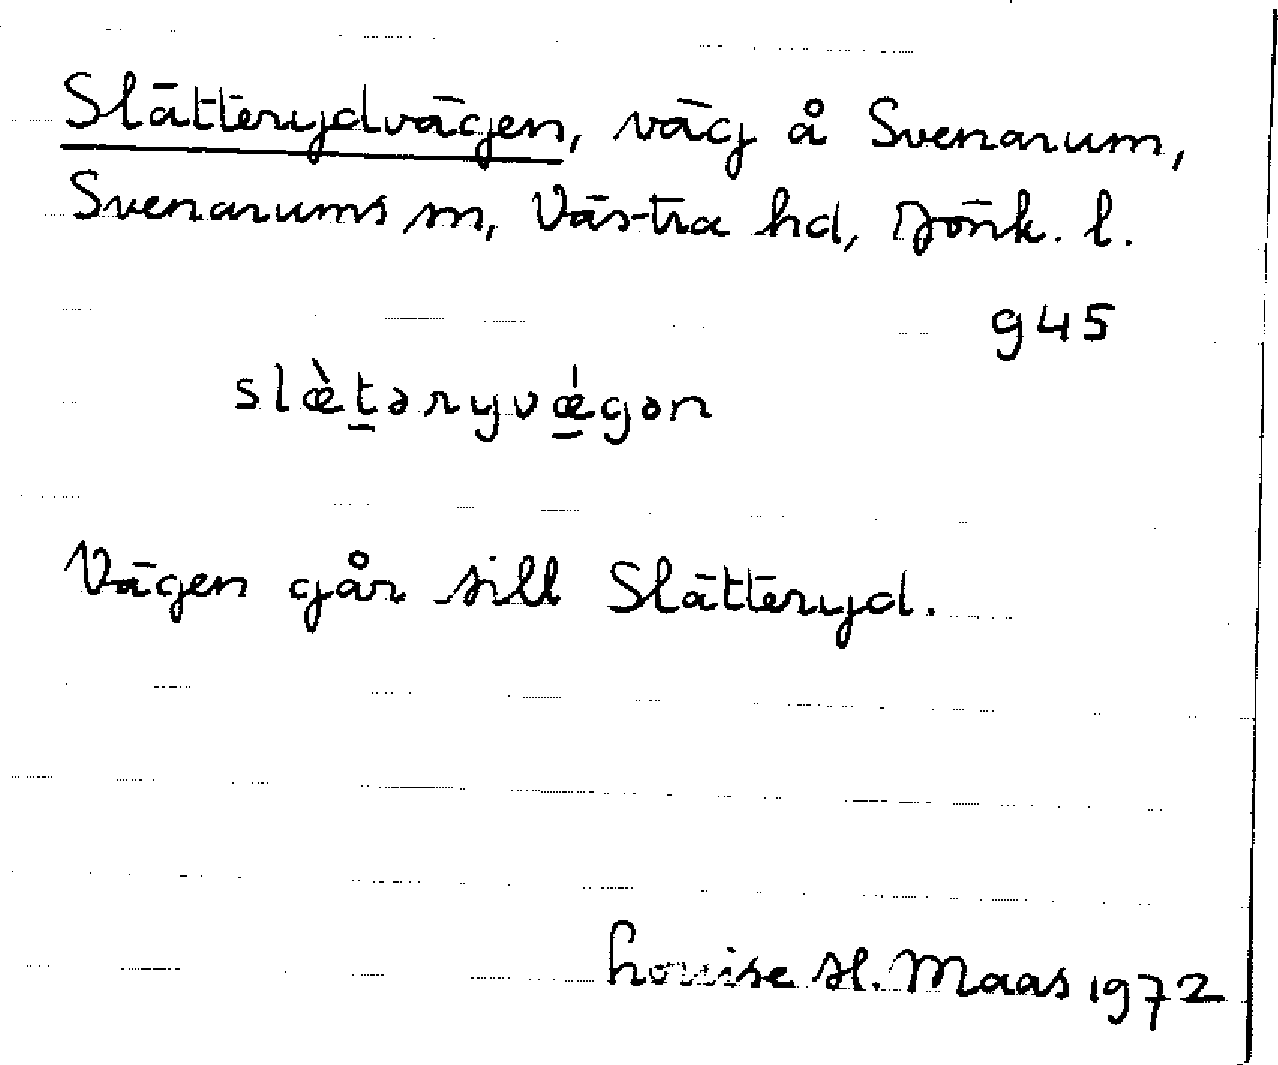 Slätterydvägen, väg å Svenarum,
Svenarums sn, Västra hd, Jönk. l.
945
slæ̀t̠əryvǽ̠gən
Vägen går till Slätteryd.
Louise H. Maas 1972